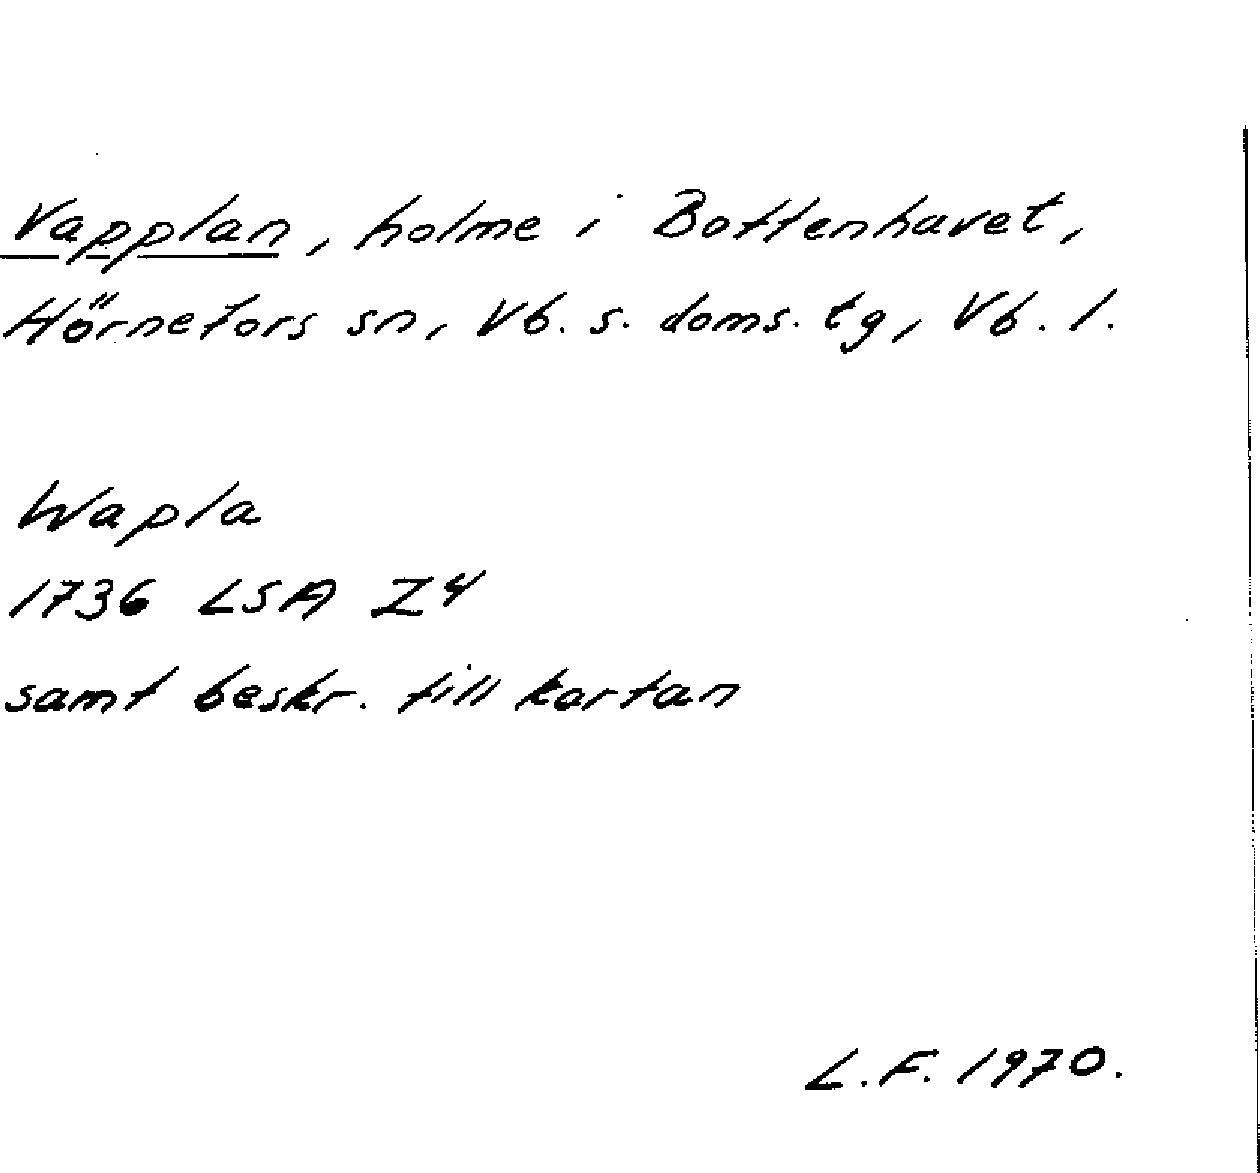 Vapplan, holme i Bottenhavet,
Hörnefors sn, Vb. s. doms. tg, Vb. l.
Wapla
1736 LSA Z4
samt beskr. till kartan
L.F. 1970.